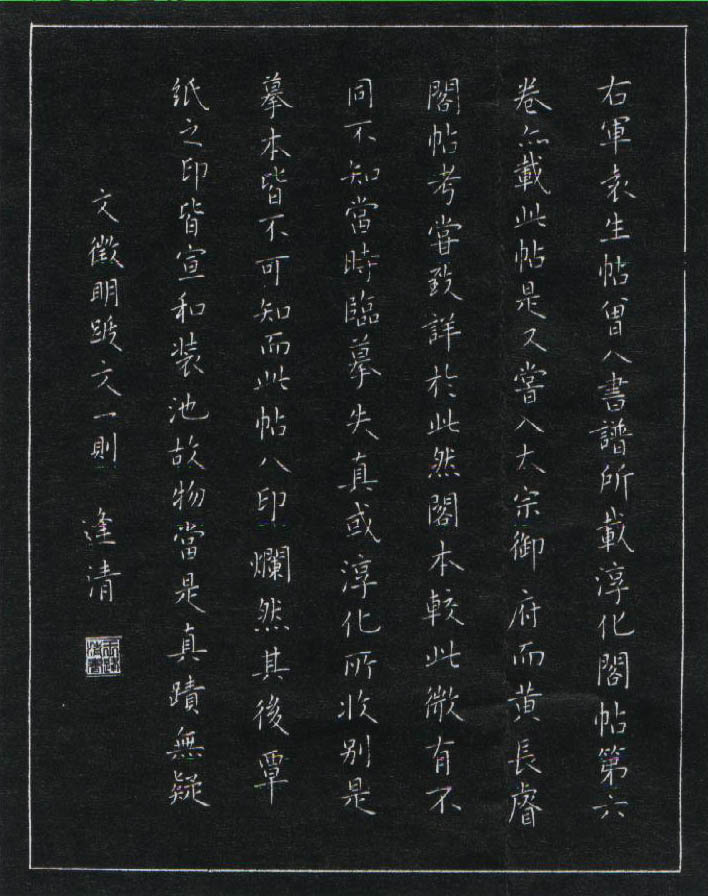 右軍袁生帖曾入書譜所載淳化閣帖第六
卷亦載此帖是又嘗入大宗御府而黄長睿
閣帖考嘗致詳於此然閣本較此微有不
同不知當時臨摹失真或淳化所收别是
摹本皆不可知而此帖八印爛然其後覃
紙之印皆宣和裝池故物當是真蹟無疑
文徵明跋文一則 逢清